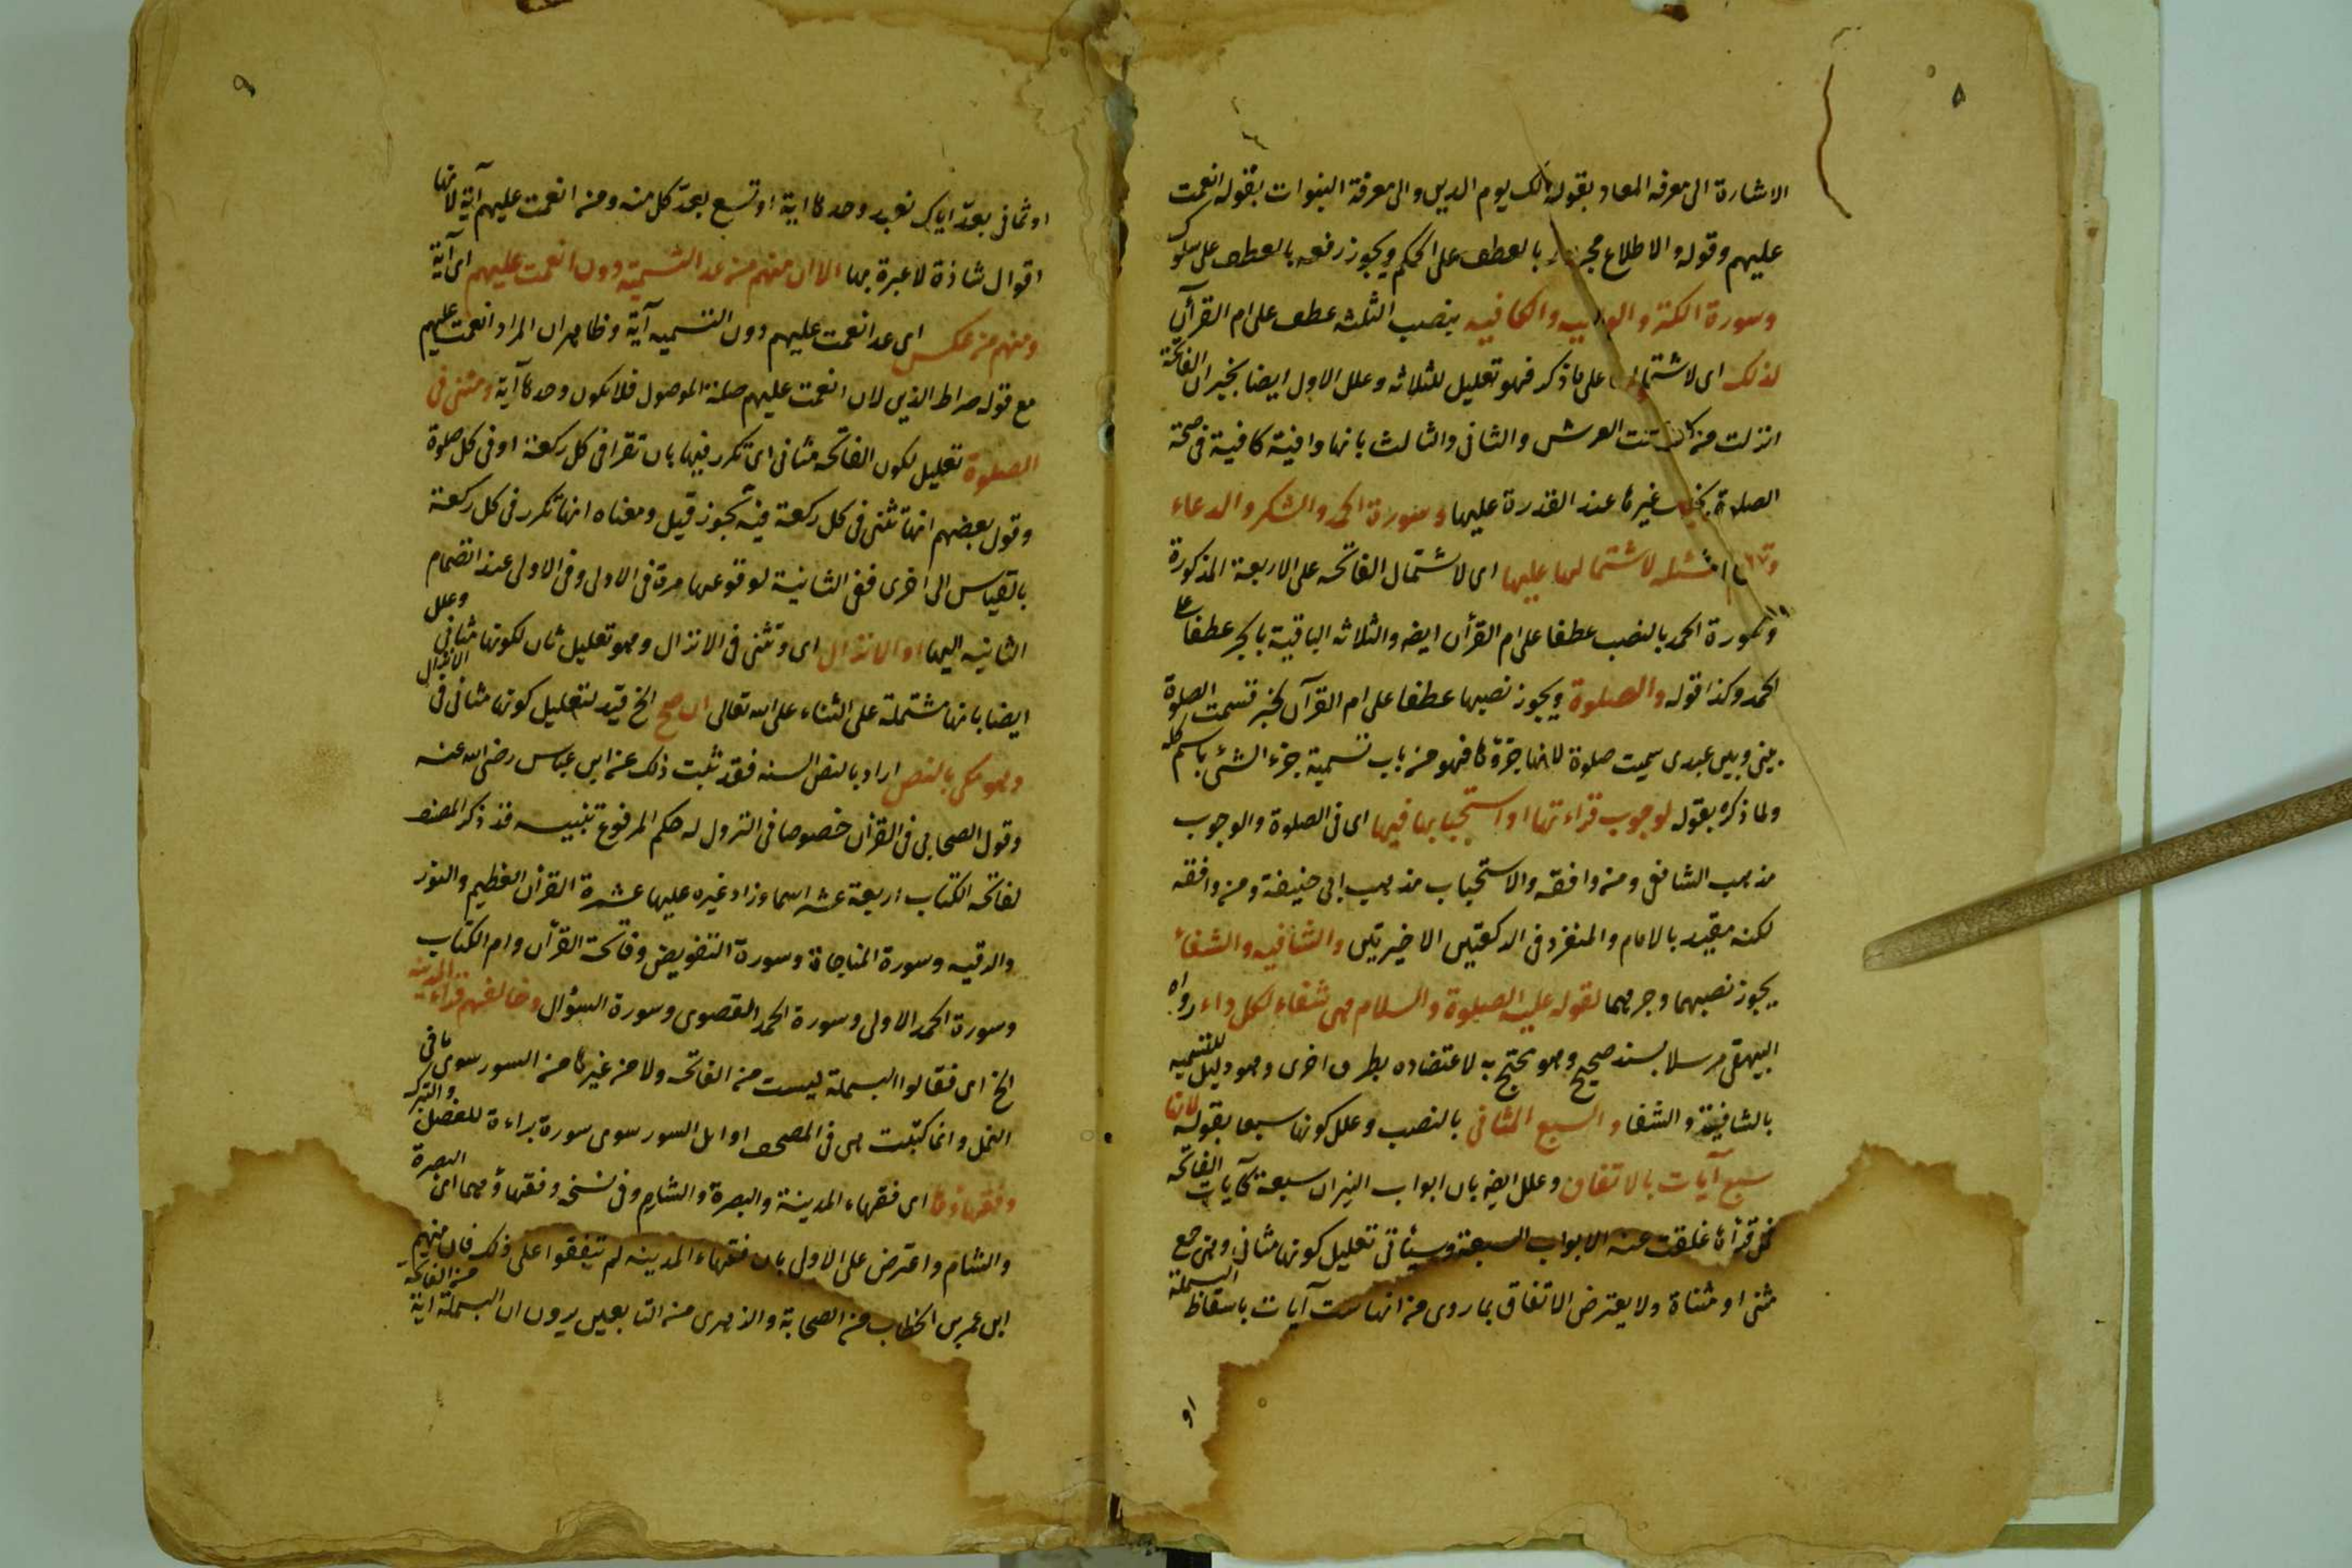 ٥
الاشارة الى معرفة المعاد بقوله مالك يوم الدين والى معرفة النبوات بقوله انعمت
عليهم وقوله والاطلاع مجرور بالعطف على الحكم ويجوز رفعه بالعطف على سلوك
وسورة الكنز والوافيه والكافيه بنصب الثلثه عطف على ام القرآن
لذلك اى لاشتمالها على ما ذكر فهو تعليل للثلاثه وعلل الاول ايضا بخبر ان الفاتحة
انزلت من كنز تحت العرش والثانى والثالث بانها وافية كافية فى صحة
الصلاة بخلاف غيرها عند القدرة عليها وسورة الحمد والشكر والدعاء
وتعليم المسئله لاشتمالها عليها اى لاشتمال الفاتحه على الاربعة المذكورة
وسورة الحمد بالنصب عطفا على ام القرأن ايضه والثلاثه الباقية بالجر عطفا على
الحمد وكذا قوله والصلوة ويجوز نصبها عطفا على ام القرآن لخبر قسمت الصلوة
بينى وبين عبدى سميت صلوة لانها جزؤها فهو من باب تسمية جزء الشئ باسم كله
ولما ذكره بقوله لوجوب قراءتها او استحبابها فيها اى فى الصلوة والوجوب
مذهب الشافعى ومن وافقه والاستحباب مذهب ابى حنيفة ومن وافقه
لكنه مقيد بالامام والمنفرد فى الركعتين الاخيرتين والشافيه والشفاء
يجوز نصبهما وجرهما لقوله عليه الصلوة والسلام هى شفاء لكل داء رواه
البيهقى مرسلا بسند صحيح وهو محتج به لاعتضاده بطرق اخرى وهو دليل للتسميه
بالشافية والشفاء والسبع المثانى بالنصب وعلل كونها سبعا بقوله لانها
سبع آيات بالاتفاق وعلل ايضه بان ابواب النيران سبعة كآيات الفاتحه
فمن قرأها غلقت عنه الابواب السبعة وسيأتى تعليل كونها مثانى وهى جمع
مثنى او مثناة ولا يعترض الاتفاق بما روى من انها ست آيات باسقاط البسملة
او
٩
او ثمانى بعدّ اياك نعبد وحدها اية او تسع بعدّ كل منه ومن انعمت عليهم آية لانها
اقوال شاذة لا عبرة بها الا ان منهم من عد التسمية دون انعمت عليهم اى آية
ومنهم من عكس اى عد انعمت عليهم دون التسميه آية وظاهر ان المراد انعمت عليهم
مع قوله صراط الذين لان انعمت عليهم صلة الموصول فلا يكون وحدها آية وتثنى فى
الصلوة تعليل لكون الفاتحه مثانى اى تكرر فيها بان تقرا فى كل ركعة او فى كل صلوة
وقول بعضهم انها تثنى فى كل ركعة فيه تجوز قيل ومعناه انها تكرر فى كل ركعة
بالقياس الى اخرى ففى الثانية لوقوعها مرة فى الاولى وفى الاولى عند انضمام
الثانيه اليها او الانزال اى وتثنى فى الانزال وهو تعليل ثان لكونها مثانى وعلل
ايضا بانها مشتملة على الثناء على الله تعالى ان صح الخ قيد لتعليل كونها مثانى فى الانزال
وهو مكى بالنص اراد بالنص السنه فقد ثبت ذلك عن ابن عباس رضى الله عنه
وقول الصحابى فى القرأن خصوصا فى النزول له حكم المرفوع تنبيه قد ذكر المصنف
لفاتحه الكتاب اربعة عشر اسما وزاد غيره عليها عشرة القرأن العظيم والنور
والرقيه وسورة المناجاة وسورة التفويض وفاتحة القرأن وام الكتاب
وسورة الحمد الاولى وسورة الحمد القصوى وسورة السؤال وخالفهم قراء المدينة
الخ اى فقالوا البسملة ليست من الفاتحه ولا من غيرها من السور سوى ما فى
النمل وانما كتبت هى فى المصحف اوايل السور سوى سورة براءة للفصل والتبرك
وفقهاؤها اى فقهاء المدينة والبصرة والشام وفى نسخه وفقهاؤهما اى البصرة
والشام واعترض على الاول بان فقهاء المدينه لم يتفقوا على ذلك فان منهم
ابن عمر بن الخطاب من الصحابة والزهرى من التابعين يرون ان البسملة اية من الفاتحه